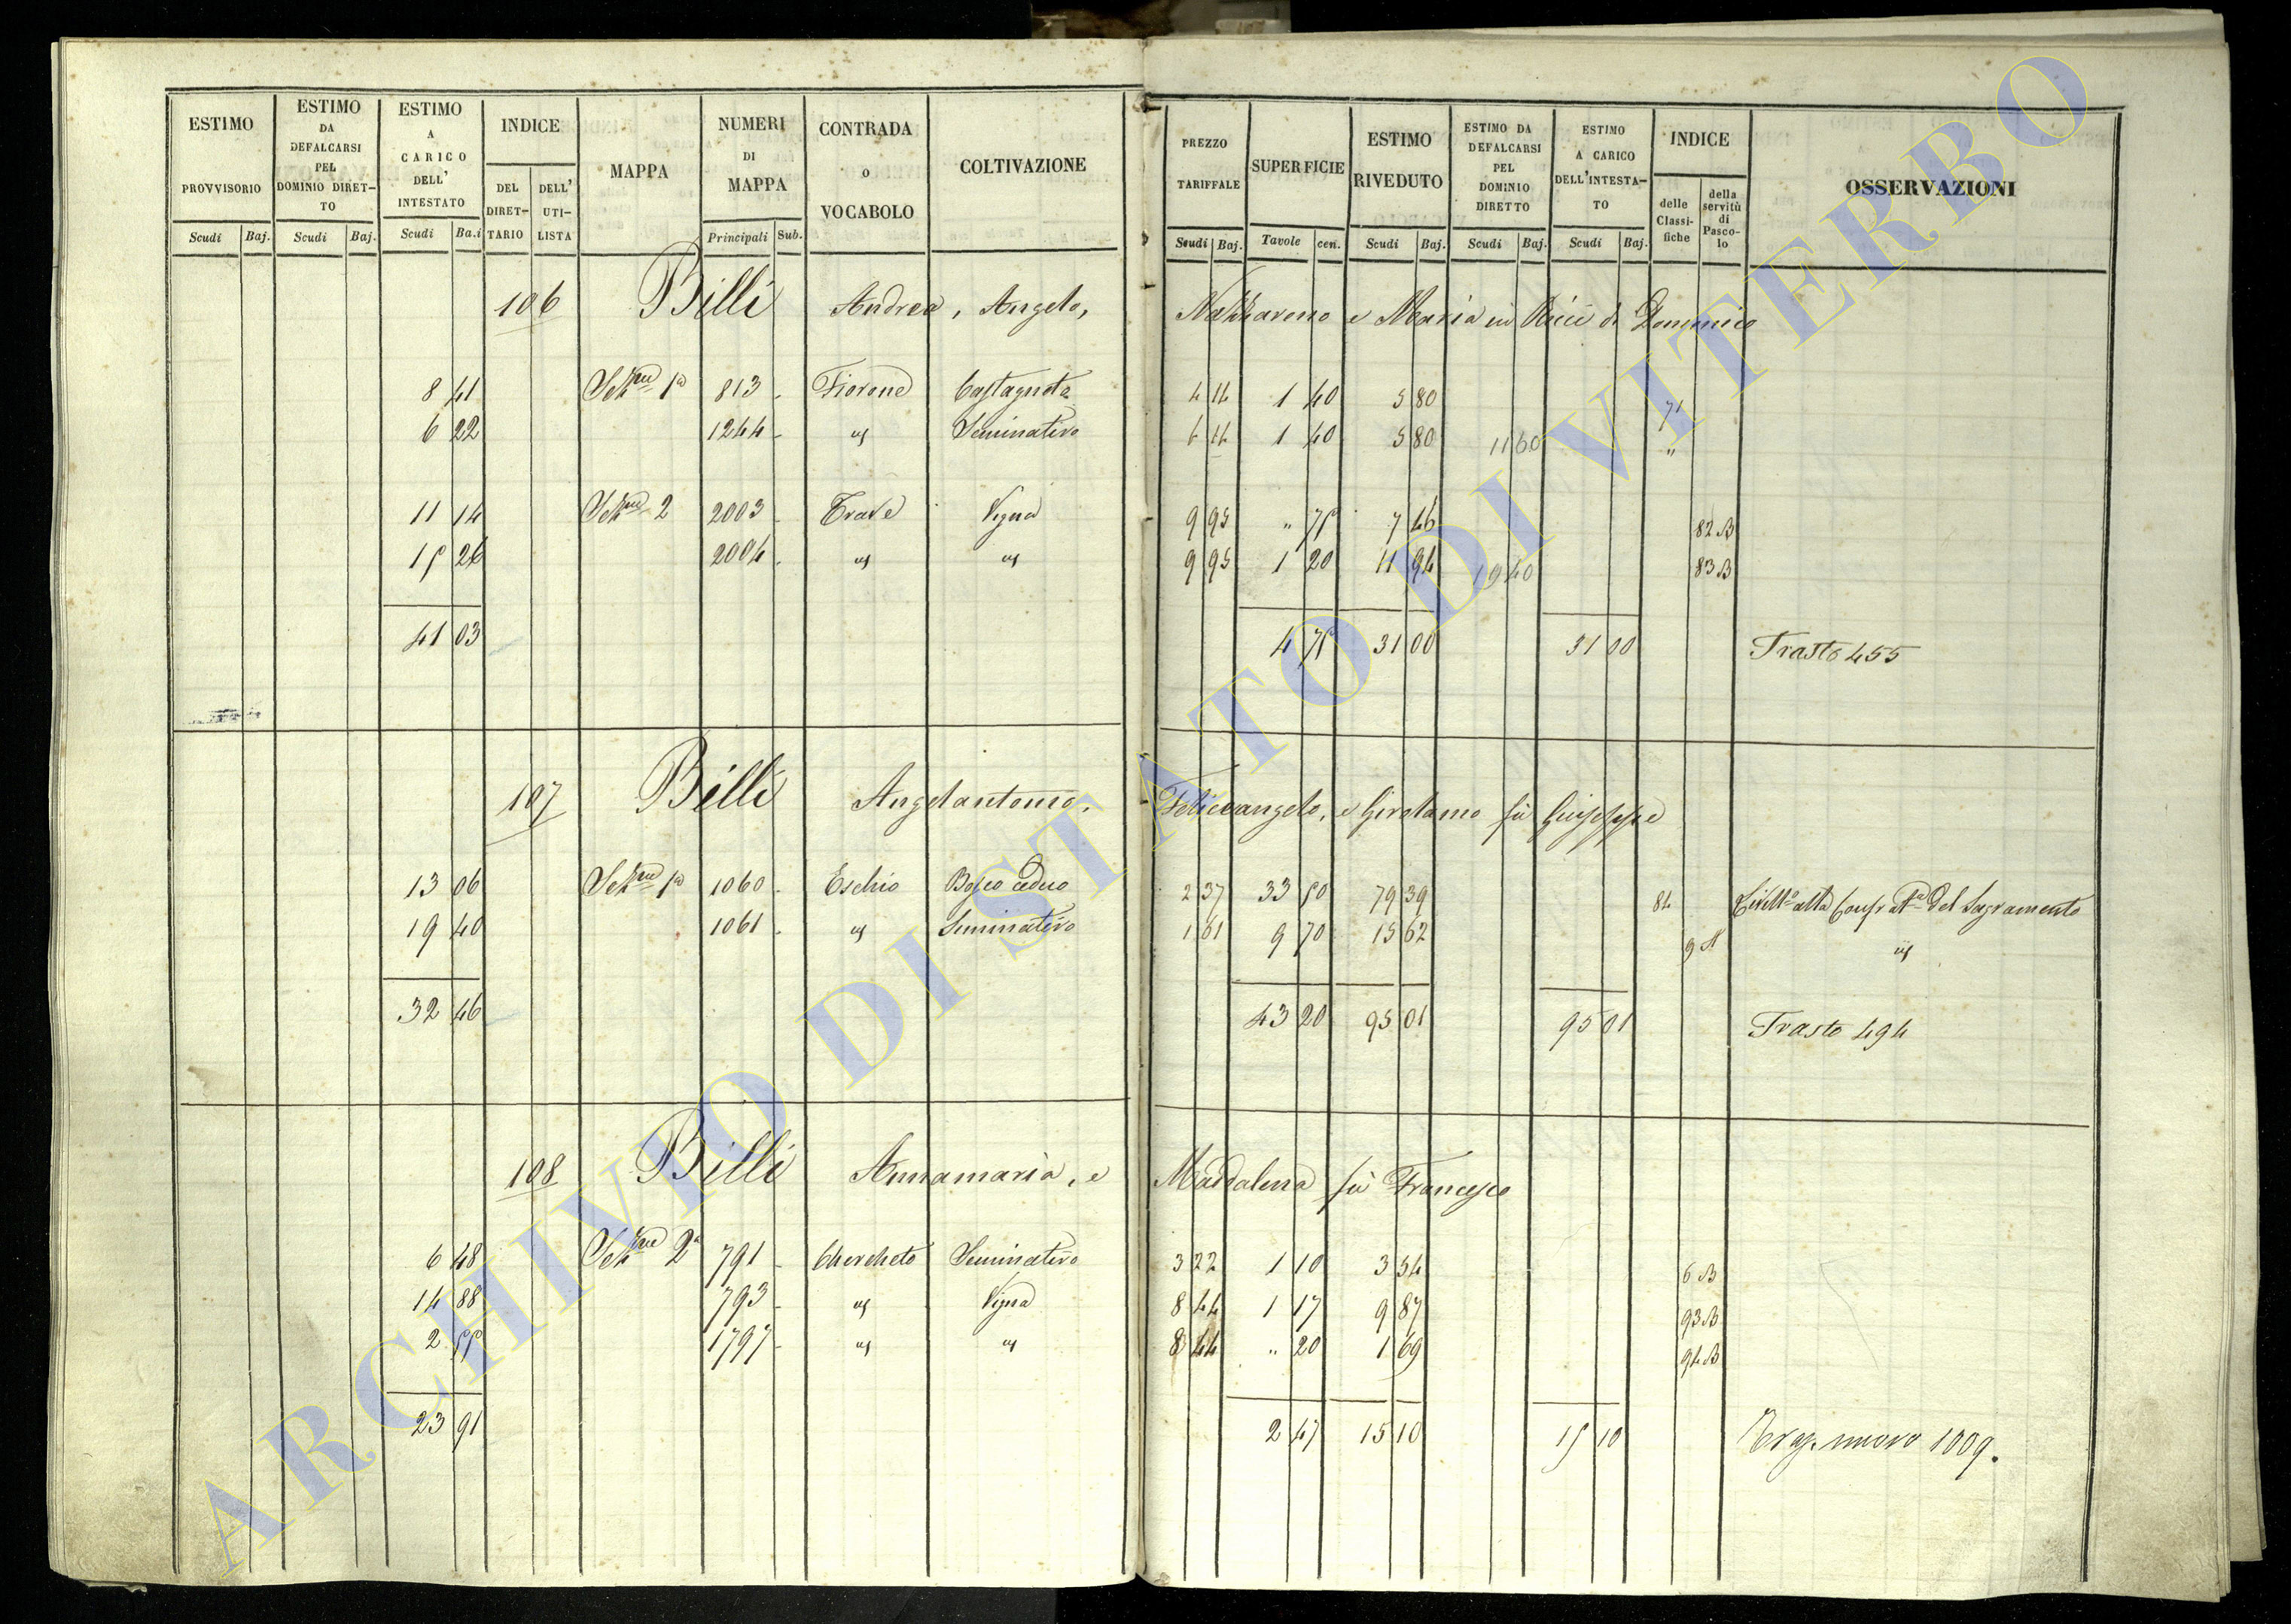 ESTIMO PROVVISORIO
Scudi Baj.
ESTIMO DA DEFALCARSI PEL DOMINIO DIRET-TO
Scudi Baj.
ESTIMO A CARICO DELL' INTESTATO
Scudi Ba.i
INDICE
DEL DIRET-TARIO
DELL' UTI-LISTA
MAPPA
NUMERI DI MAPPA
Principali Sub.
CONTRADA O VOCABOLO
COLTIVAZIONE
PREZZO TARIFFALE
Scudi Baj.
SUPERFICIE
Tavole cen.
ESTIMO RIVEDUTO
Scudi Baj.
ESTIMO DA DEFALCARSI PEL DOMINIO DIRETTO
Scudi Baj.
ESTIMO A CARICO DELL'INTESTA-TO
Scudi Baj.
INDICE
delle Classi-fiche
della servitù di Pasco-lo
OSSERVAZIONI
106 Billi Andrea, Angelo, Nazzareno e Maria in Ricci di Domenico
8 41 Sezne 1a 813 - Fiorone Castagneta 4 14 1 40 5 80 71
6 22 1244 - us Seminativo 4 14 1 40 5 80 11 60 "
11 14 Sezne 2 2003 - Trave Vigna 9 95 " 75 7 46 82 B
15 26 2004 - us us 9 95 1 20 11 94 19 40 83 B
41 03 4 75 31 00 31 00 Trasto 455
107 Billi Angelantonio, Feliceangelo, e Girolamo fù Giuseppe
13 06 Sezne 1a 1060 - Eschio Bosco ceduo 2 37 33 50 79 39 84 Livello alla Confrata del Sagramento
19 40 1061 - us Seminativo 1 61 9 70 15 62 9 A us
32 46 43 20 95 01 95 01 Trasto 494
108 Billi Annamaria, e Maddalena fù Francesco
6 48 Sezne 2a 791 - Chercheto Seminativo 3 22 1 10 3 54 6 B
14 88 793 - us Vigna 8 44 1 17 9 87 93 B
2 55 1797 - us us 8 44 " 20 1 69 94 B
23 91 2 47 15 10 15 10 nuovo 1009.
ARCHIVIO DI STATO DI VITERBO